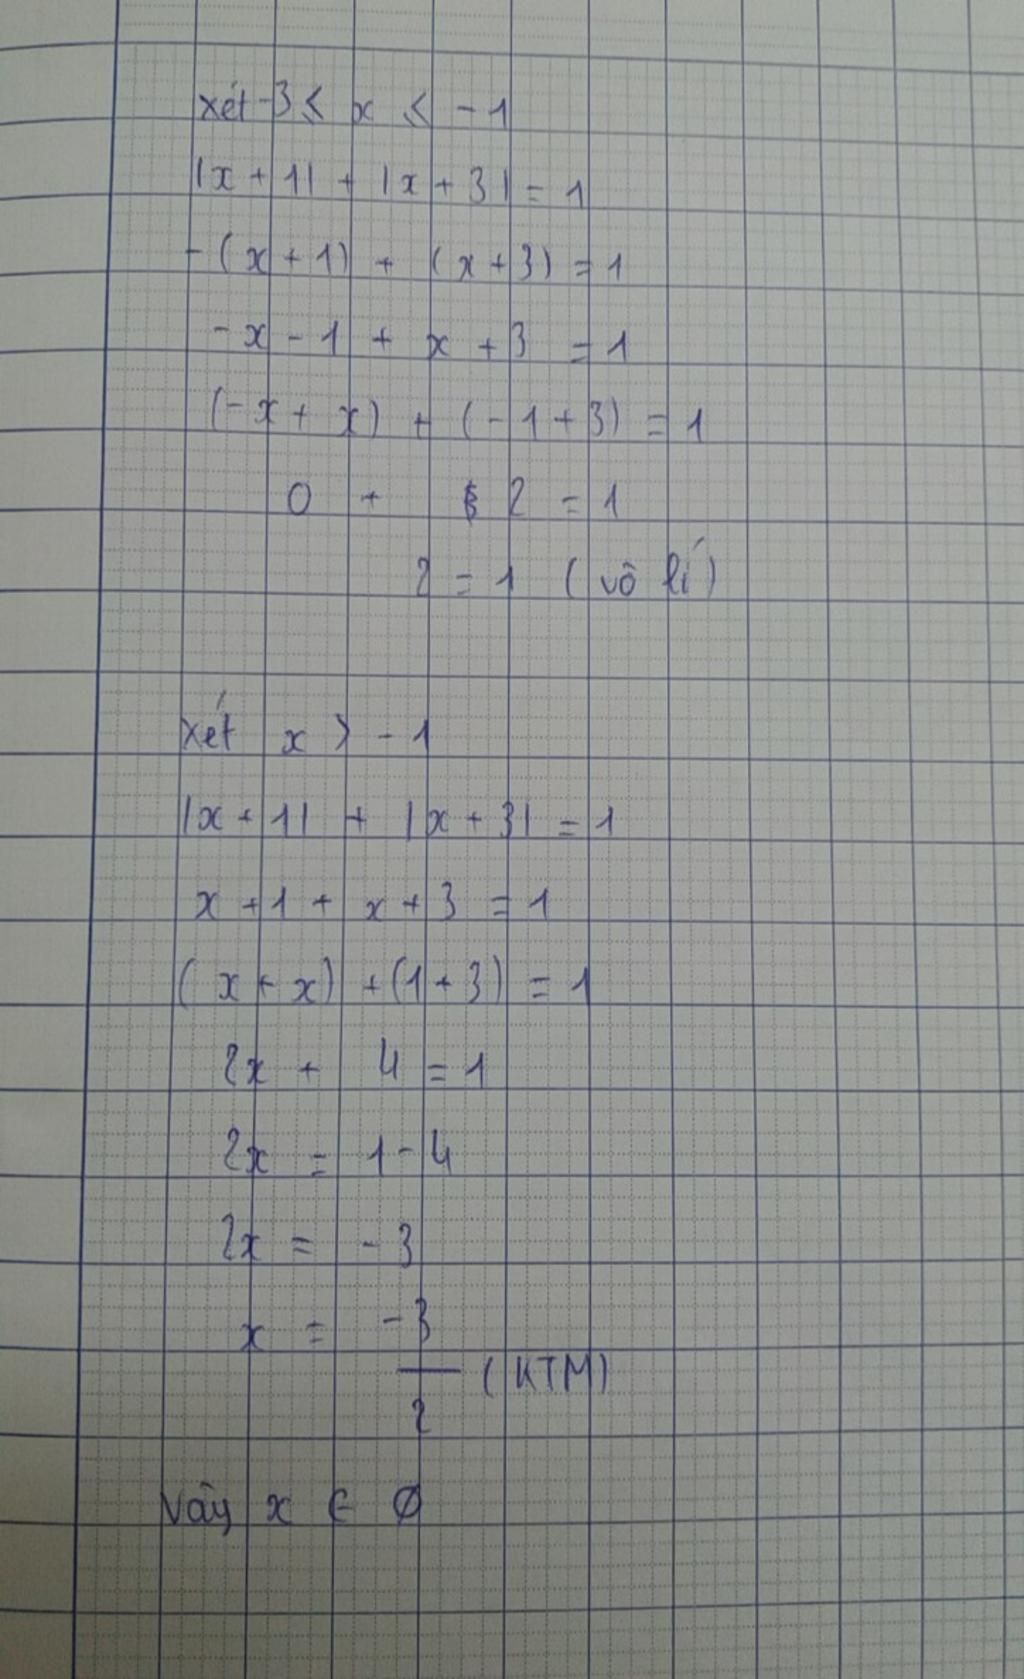 xét -3 ≤ x ≤ -1
|x + 1| + |x + 3| = 1
-(x + 1) + (x + 3) = 1
-x - 1 + x + 3 = 1
(-x + x) + (-1 + 3) = 1
0 + 2 = 1
2 = 1 (vô lí)
xét x > -1
|x + 1| + |x + 3| = 1
x + 1 + x + 3 = 1
(x + x) + (1 + 3) = 1
2x + 4 = 1
2x = 1 - 4
2x = -3
x = -3/2 (KTM)
Vậy x ∈ ∅